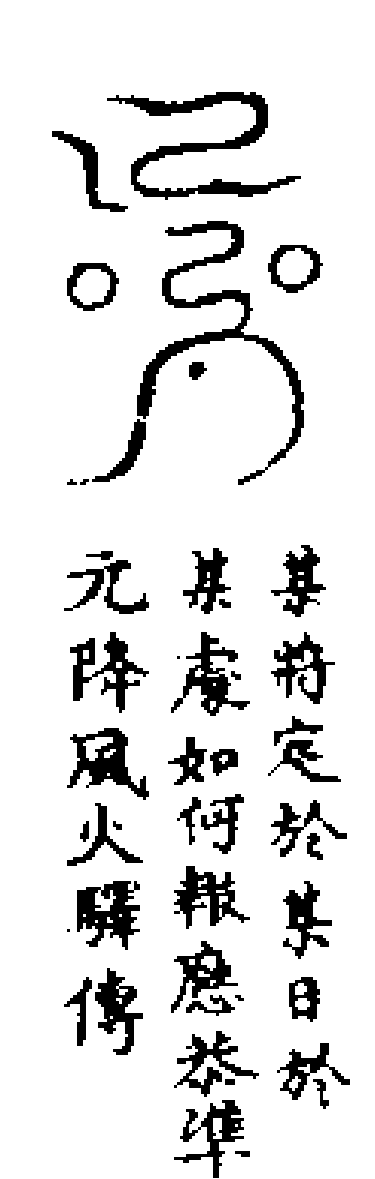 某將定於某日於
某處如何報應恭準
元降風火驛傳